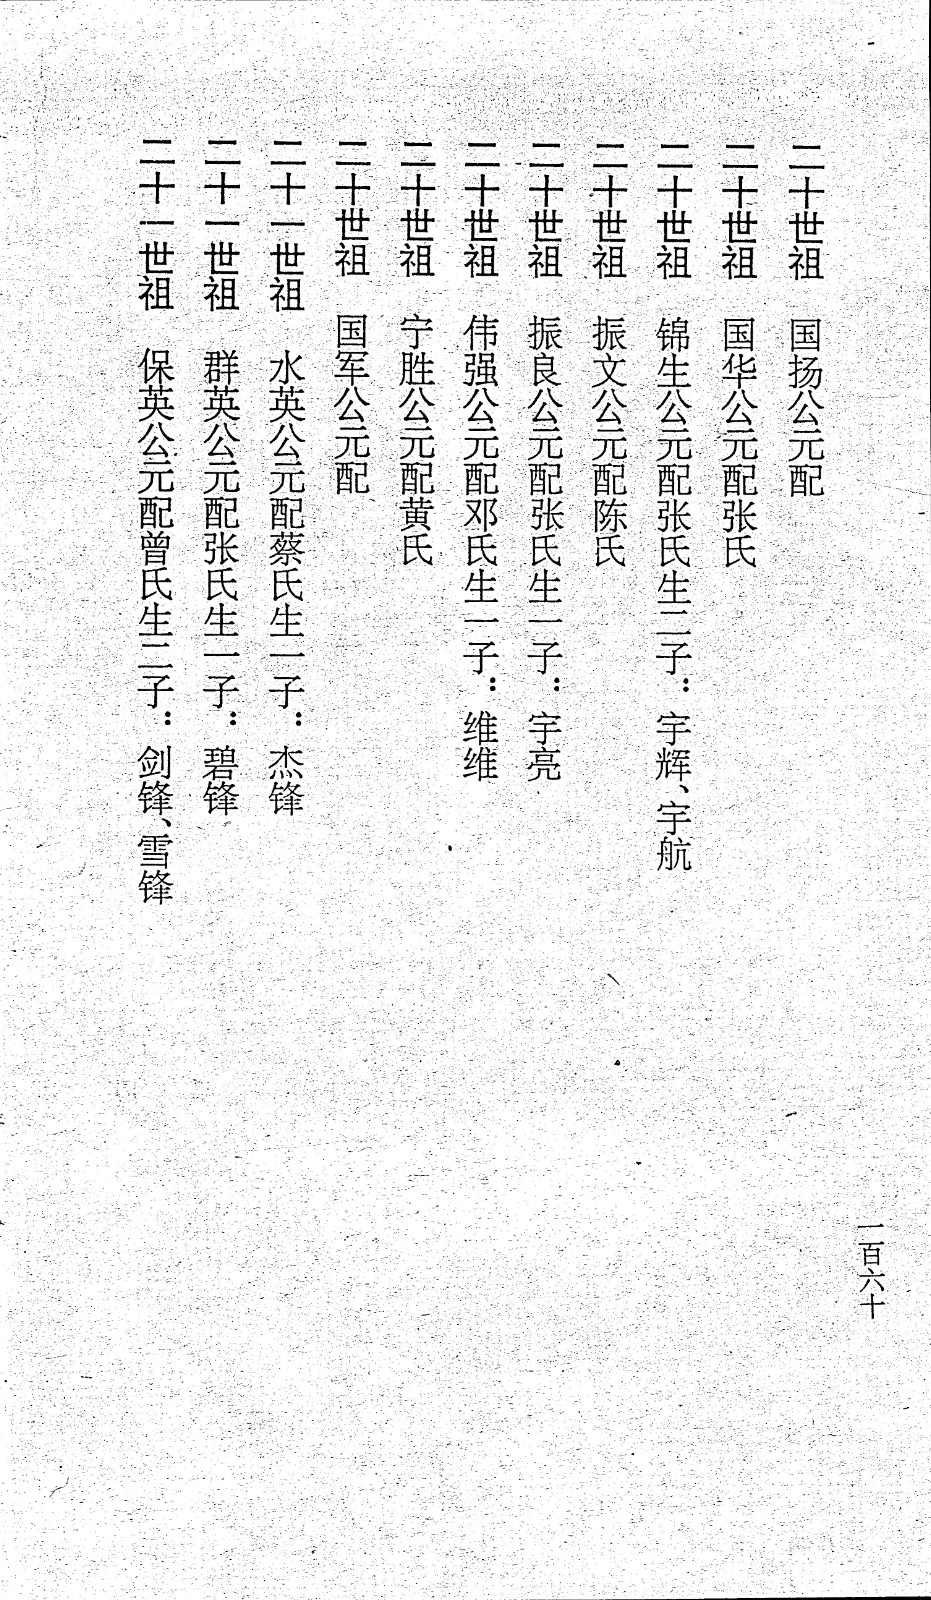 二十世祖 国扬公元配
二十世祖 国华公元配张氏
二十世祖 锦生公元配张氏生二子：宇辉、宇航
二十世祖 振文公元配陈氏
二十世祖 振良公元配张氏生一子：宇亮
二十世祖 伟强公元配邓氏生一子：维维
二十世祖 宁胜公元配黄氏
二十世祖 国军公元配
二十一世祖 水英公元配蔡氏生一子：杰锋
二十一世祖 群英公元配张氏生一子：碧锋
二十一世祖 保英公元配曾氏生二子：剑锋、雪锋
一百六十